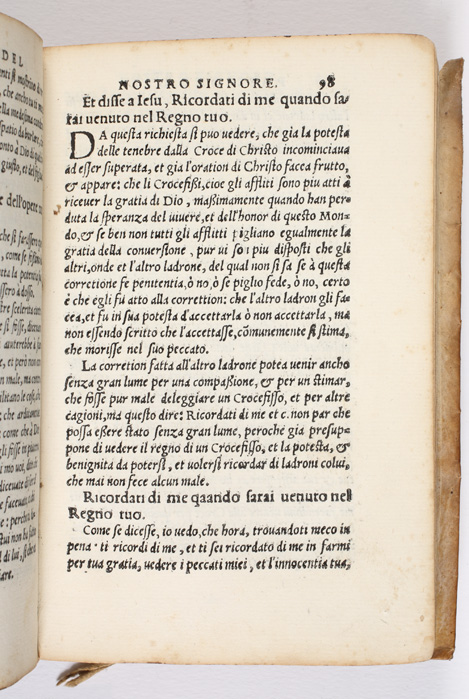 NOSTRO SIGNORE. 98
Et disse a Iesu, Ricordati di me quando sa-
rai uenuto nel Regno tuo.
DA questa richiesta si puo uedere, che gia la potesta
delle tenebre dalla Croce di Christo incominciaua
ad esser superata, et gia l'oration di Christo facea frutto,
& appare: che li Crocefißi, cioe gli affliti sono piu atti à
riceuer la gratia di Dio, maßimamente quando han per-
duta la speranza del uiuere, et dell'honor di questo Mon-
do, & se ben non tutti gli afflitti pigliano egualmente la
gratia della conuersione, pur ui so i piu disposti che gli
altri, onde et l'altro ladrone, del qual non si sa se à questa
correttione fe penitentia, ò no, ò se piglio fede, ò no, certo
è che egli fu atto alla correttion: che l'altro ladron gli fa-
cea, et fu in sua potesta d'accettarla ò non accettarla, ma
non essendo scritto che l'accettasse, cõmunemente si stima,
che morisse nel suo peccato.
La corretion fatta all'altro ladrone potea uenir ancho
senza gran lume per una compaßione, & per un stimar,
che fosse pur male deleggiare un Crocefisso, et per altre
cagioni, ma questo dire: Ricordati di me et c. non par che
possa eßere stato senza gran lume, peroche gia presup-
pone di uedere il regno di un Crocefisso, et la potesta, &
benignita da potersi, et uolersi ricordar di ladroni colui,
che mai non fece alcun male.
Ricordati di me qaando sarai uenuto nel
Regno tuo.
Come se dicesse, io uedo, che hora, trouandoti meco in
pena ti ricordi di me, et ti sei ricordato di me in farmi
per tua gratia, uedere i peccati miei, et l'innocentia tua,